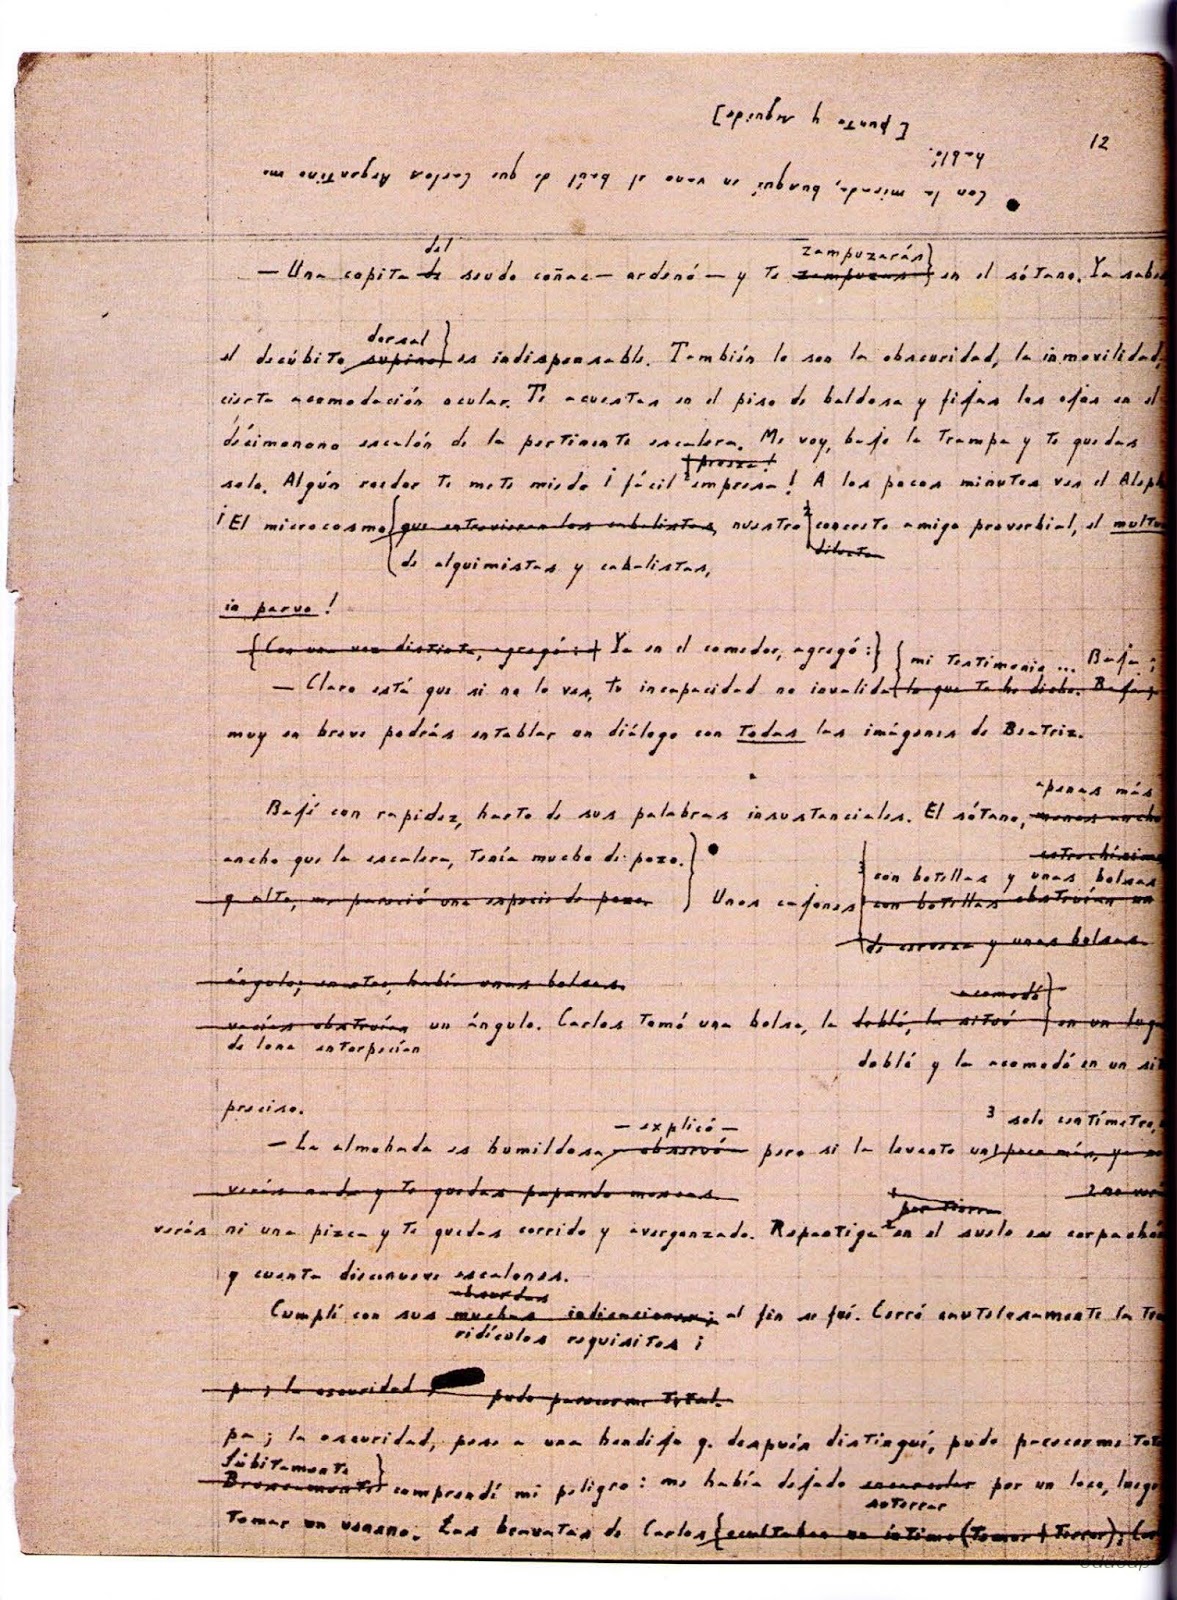 12
• Con la mirada, busqué en vano el baúl de que Carlos Argentino me
habló.
[punto y seguido]
del
zampuzarás}
— Una copita de seudo coñac — ordenó — y te zampuzas} en el sótano. Ya sabes
dorsal}
el decúbito supino} es indispensable. También lo son la obscuridad, la inmovilidad,
cierta acomodación ocular. Te acuestas en el piso de baldosa y fijas los ojos en el
décimonono escalón de la pertinente escalera. Me voy, bajo la trampa y te quedas
1 proeza!
solo. Algún roedor te mete miedo ¡fácil 2 empresa! A los pocos minutos ves el Aleph
¡El microcosmo {que entrevieron los cabalistas, nuestro 2 concreto amigo proverbial, el multum
dilecto
{de alquimistas y cabalistas,
in parvo!
{Con una voz distinta, agregó:} Ya en el comedor, agregó:} {mi testimonio ... Baja;
— Claro está que si no lo ves, tu incapacidad no invalida {lo que te he dicho. Baja;
muy en breve podrás entablar un diálogo con todas las imágenes de Beatriz.
apenas más
Bajé con rapidez, harto de sus palabras insustanciales. El sótano, menos ancho
estrechísimo
ancho que la escalera, tenía mucho de pozo.} •
3 con botellas y unas bolsas
y alto, me pareció una especie de pozo.} Unos cajones con botellas obstruían un
de cerveza y unas bolsas.
ángulo; en otro, había unas bolsas
acomodó}
vacías obstruían un ángulo. Carlos tomó una bolsa, la dobló, la situó} en un lug
de lona entorpecían
dobló y la acomodó en un sit
preciso.
3 solo centímetro,
— explicó —
— La almohada es humildosa — observó — pero si la levanto un} poco más, ya no
verás nada y te quedas papando moscas.
2 no verá
1 por tierra
verás ni una pizca y te quedas corrido y avergonzado. Repantiga 2 en el suelo ese corpachón
y cuenta diecinueve escalones.
absurdas
Cumplí con sus muchas indicaciones; al fin se fué. Cerró cautelosamente la tram
ridículos requisitos;
pa; la oscuridad, pudo parecerme total.
pa; la oscuridad, pese a una hendija q. después distinguí, pudo parecerme tota
Súbitamente}
Bruscamente} comprendí mi peligro: me había dejado encarcelar por un loco, luego
soterrar
tomar un veneno. Las bravatas de Carlos {ocultaban un íntimo (temor + terror);